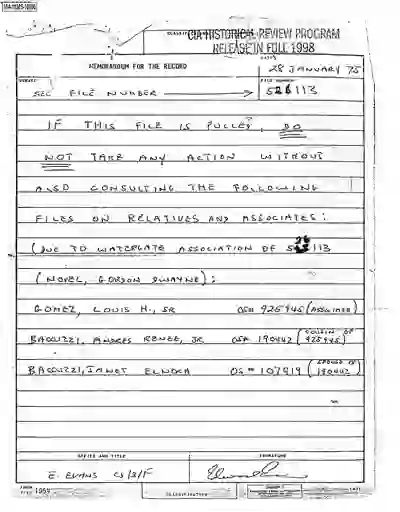 CIA HISTORICAL REVIEW PROGRAM
RELEASE IN FULL 1998
MEMORANDUM FOR THE RECORD
28 JANUARY 75
SEE FILE NUMBER
526113
IF THIS FILE IS PULLED, DO
NOT TAKE ANY ACTION WITHOUT
ALSO CONSULTING THE FOLLOWING
FILES ON RELATIVES AND ASSOCIATES:
(DUE TO WATERGATE ASSOCIATION OF 526113
(NOVEL, GORDON DWAYNE):
GOMEZ, LOUIS H., SR OS# 925945 (ASSOCIATE)
BACOUZZI, ANDRES RENEE, JR OS# 190442 (COUSIN OF 925945)
BACOUZZI, JANET ELNORA OS# 107919 (SPOUSE OF 190442)
OFFICE AND TITLE
SIGNATURE
E. EVANS
FORM
CLASSIFICATION